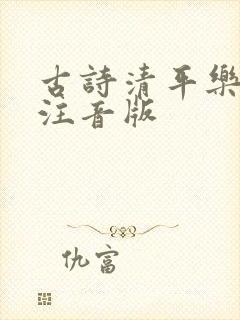 古詩清平樂
注音版
仇富